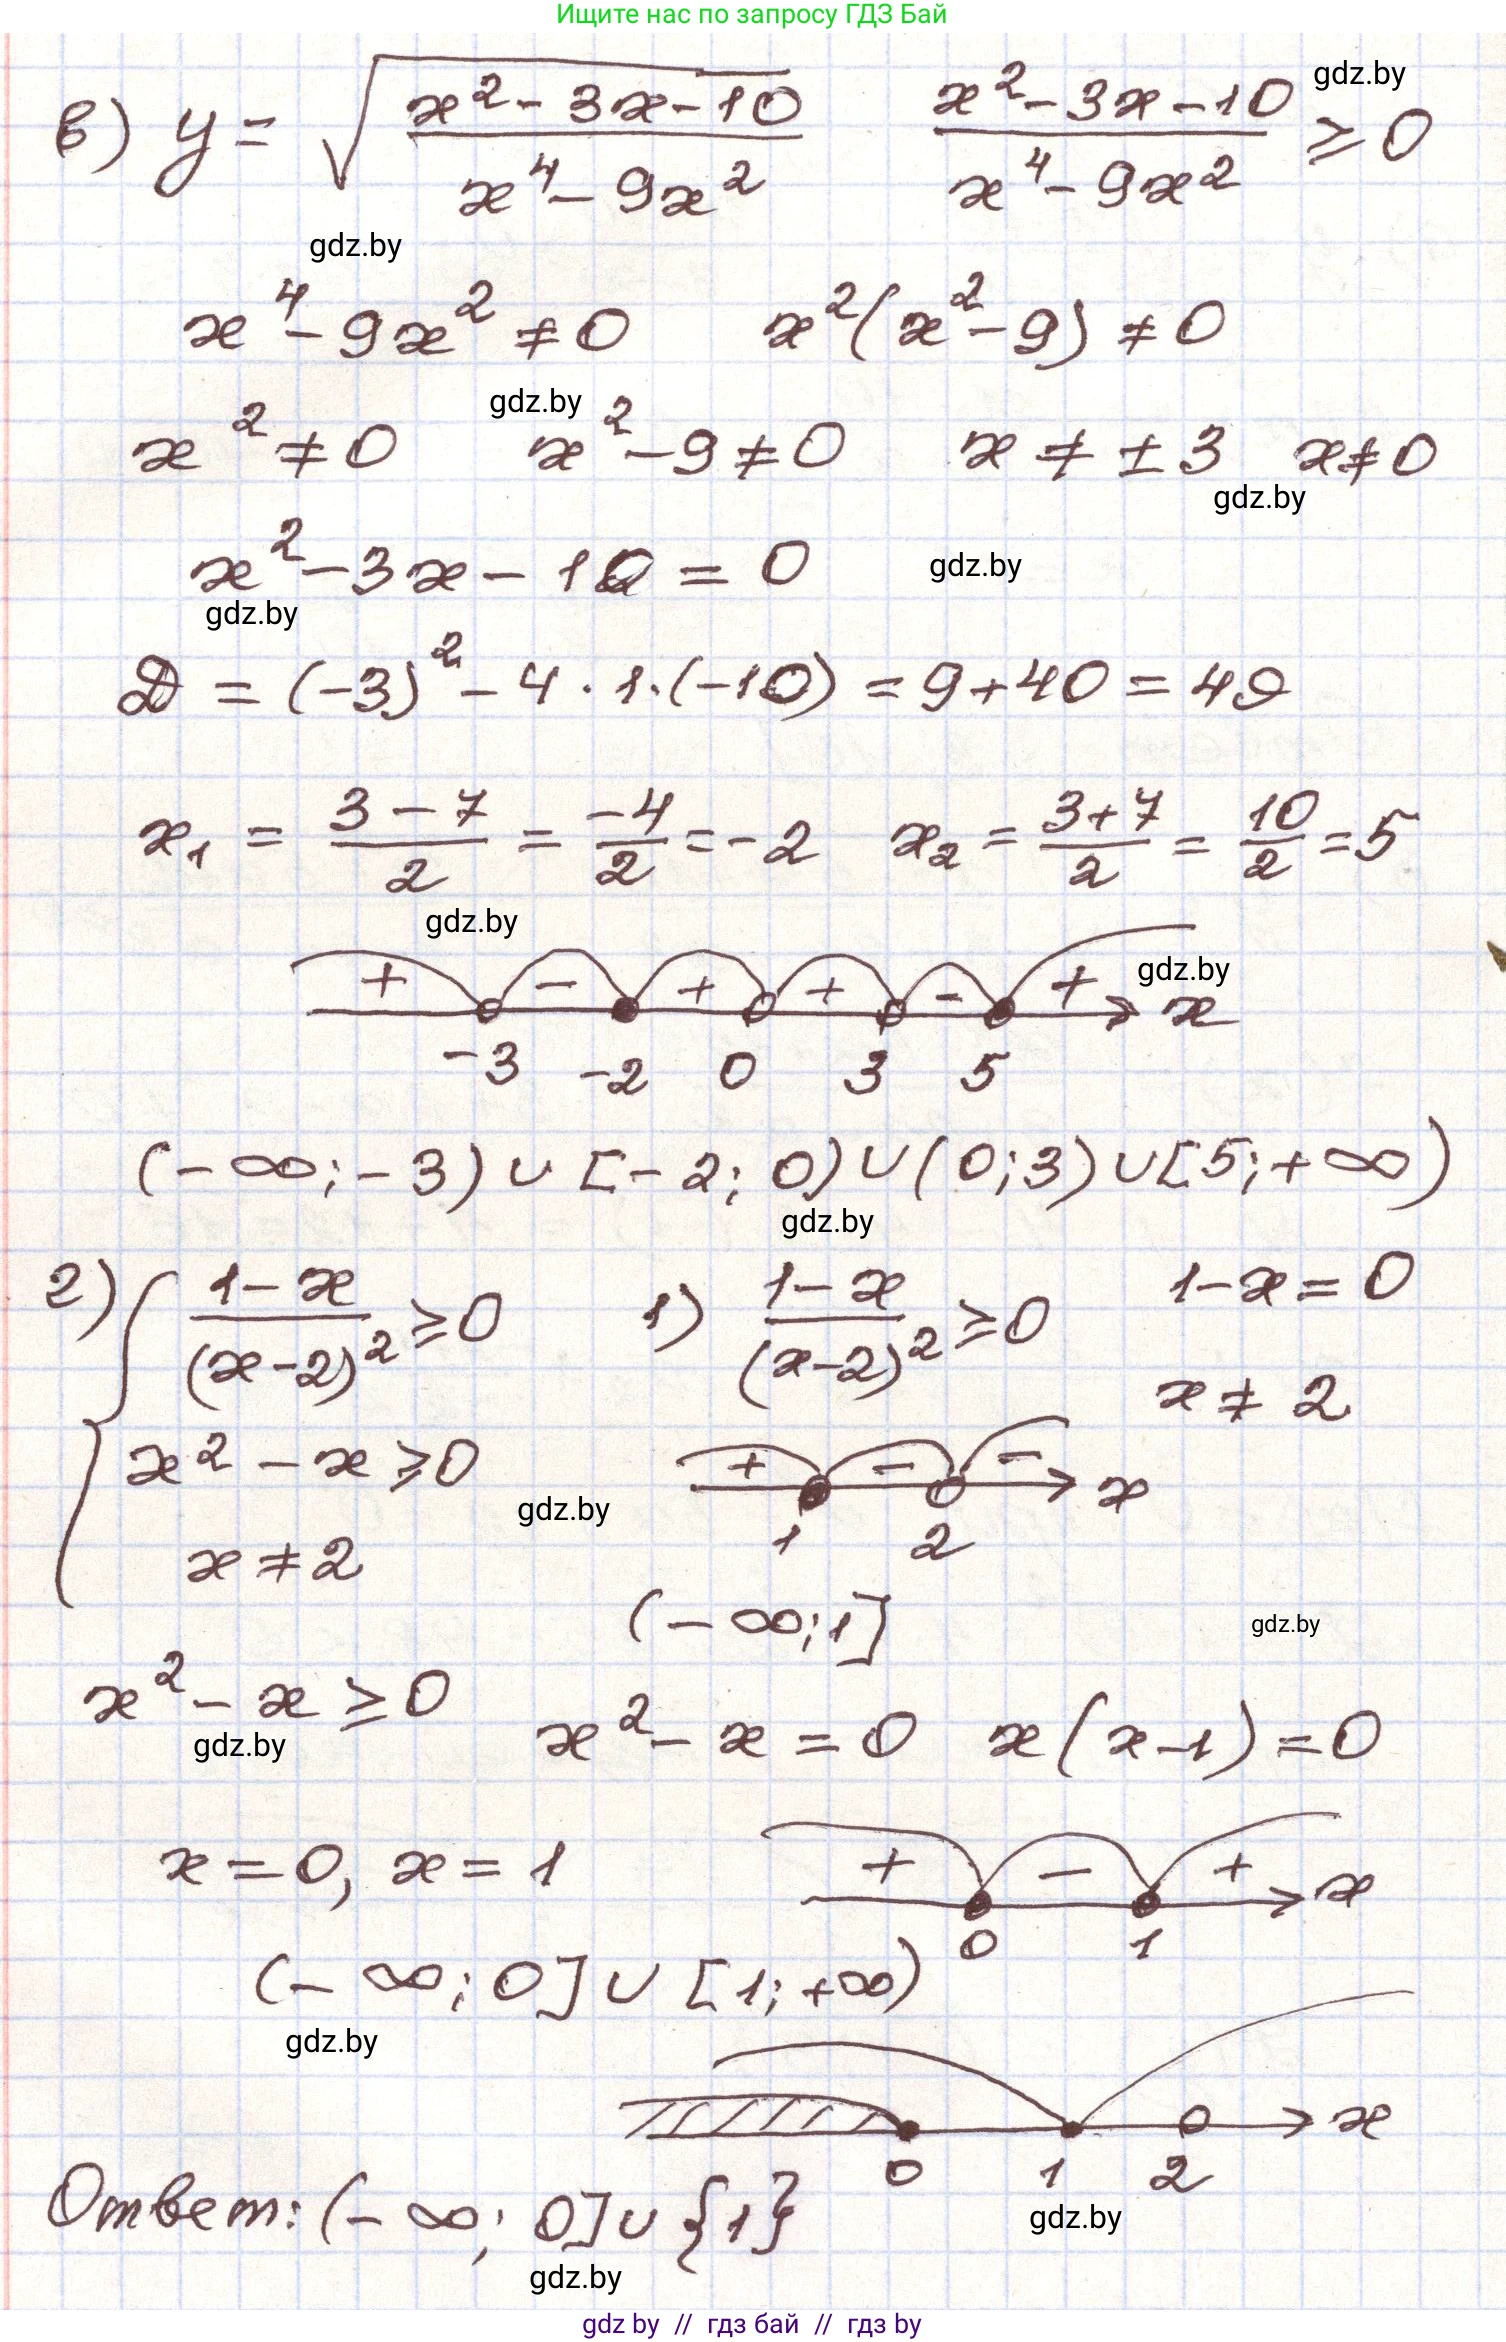 Ищите нас по запросу ГДЗ Бай
в) y = √((x² - 3x - 10)/(x⁴ - 9x²))   (x² - 3x - 10)/(x⁴ - 9x²) ≥ 0
gdz.by
gdz.by
x⁴ - 9x² ≠ 0   x²(x² - 9) ≠ 0
gdz.by
x² ≠ 0   x² - 9 ≠ 0   x ≠ ±3   x ≠ 0
gdz.by
x² - 3x - 10 = 0
gdz.by
gdz.by
D = (-3)² - 4 · 1 · (-10) = 9 + 40 = 49
x₁ = (3 - 7)/2 = -4/2 = -2   x₂ = (3+7)/2 = 10/2 = 5
gdz.by
+ - + + - + x
gdz.by
-3 -2 0 3 5
(-∞; -3) ∪ [-2; 0) ∪ (0; 3) ∪ [5; +∞)
gdz.by
2) { (1 - x)/(x - 2)² ≥ 0   1) (1 - x)/(x - 2)² ≥ 0   1 - x = 0
x ≠ 2
x² - x ≥ 0   + - - x
gdz.by
1 2
x ≠ 2
(-∞; 1]
gdz.by
x² - x ≥ 0   x² - x = 0   x(x - 1) = 0
gdz.by
x = 0, x = 1   + - + x
0 1
(-∞; 0] ∪ [1; +∞)
gdz.by
x
0 1 2
Ответ: (-∞; 0] ∪ {1}
gdz.by
gdz.by
gdz by // гдз бай // гдз by